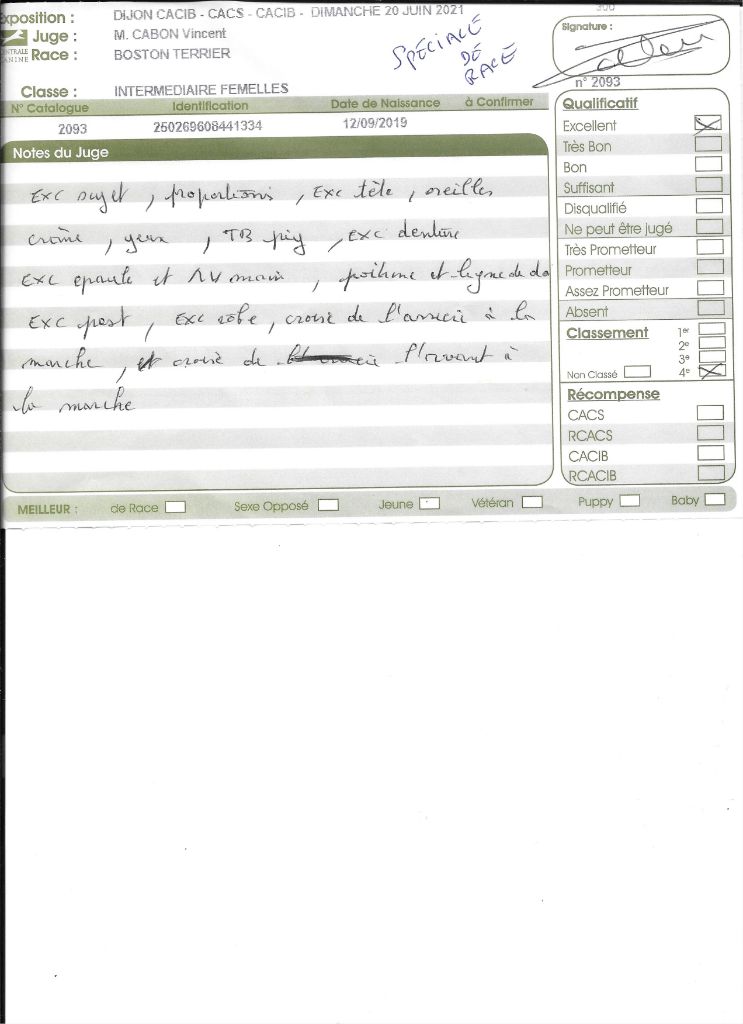 xposition : DIJON CACIB - CACS - CACIB - DIMANCHE 20 JUIN 2021
Juge : M. CABON Vincent
CENTRALE CANINE Race : BOSTON TERRIER
SPÉCIALE
DE
RACE
Signature :
n° 2093
Classe : INTERMEDIAIRE FEMELLES
N° Catalogue Identification Date de Naissance à Confirmer
2093 250269608441334 12/09/2019
Notes du Juge
Exc sujet, proportions, Exc tête, oreilles
crâne, yeux, TB pig, exc denture
Exc epaule et AV main, poitrine et ligne de do
Exc post, Exc robe, croise de l'arrière à la
marche, et croise de l'avant à
la marche
Qualificatif
Excellent
Très Bon
Bon
Suffisant
Disqualifié
Ne peut être jugé
Très Prometteur
Prometteur
Assez Prometteur
Absent
Classement 1er
2e
3e
Non Classé 4e
Récompense
CACS
RCACS
CACIB
RCACIB
MEILLEUR : de Race Sexe Opposé Jeune Vétéran Puppy Baby